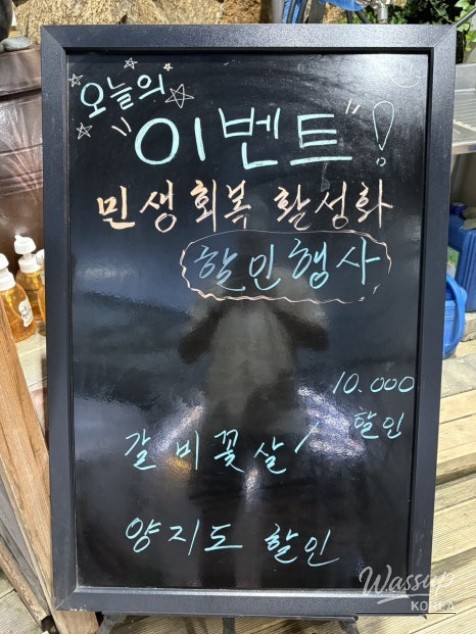 오늘의
"이벤트"!
민생회복 활성화
할인행사
10.000
할인
갈비꽃살/
양지도 할인
Wassup
KOREA